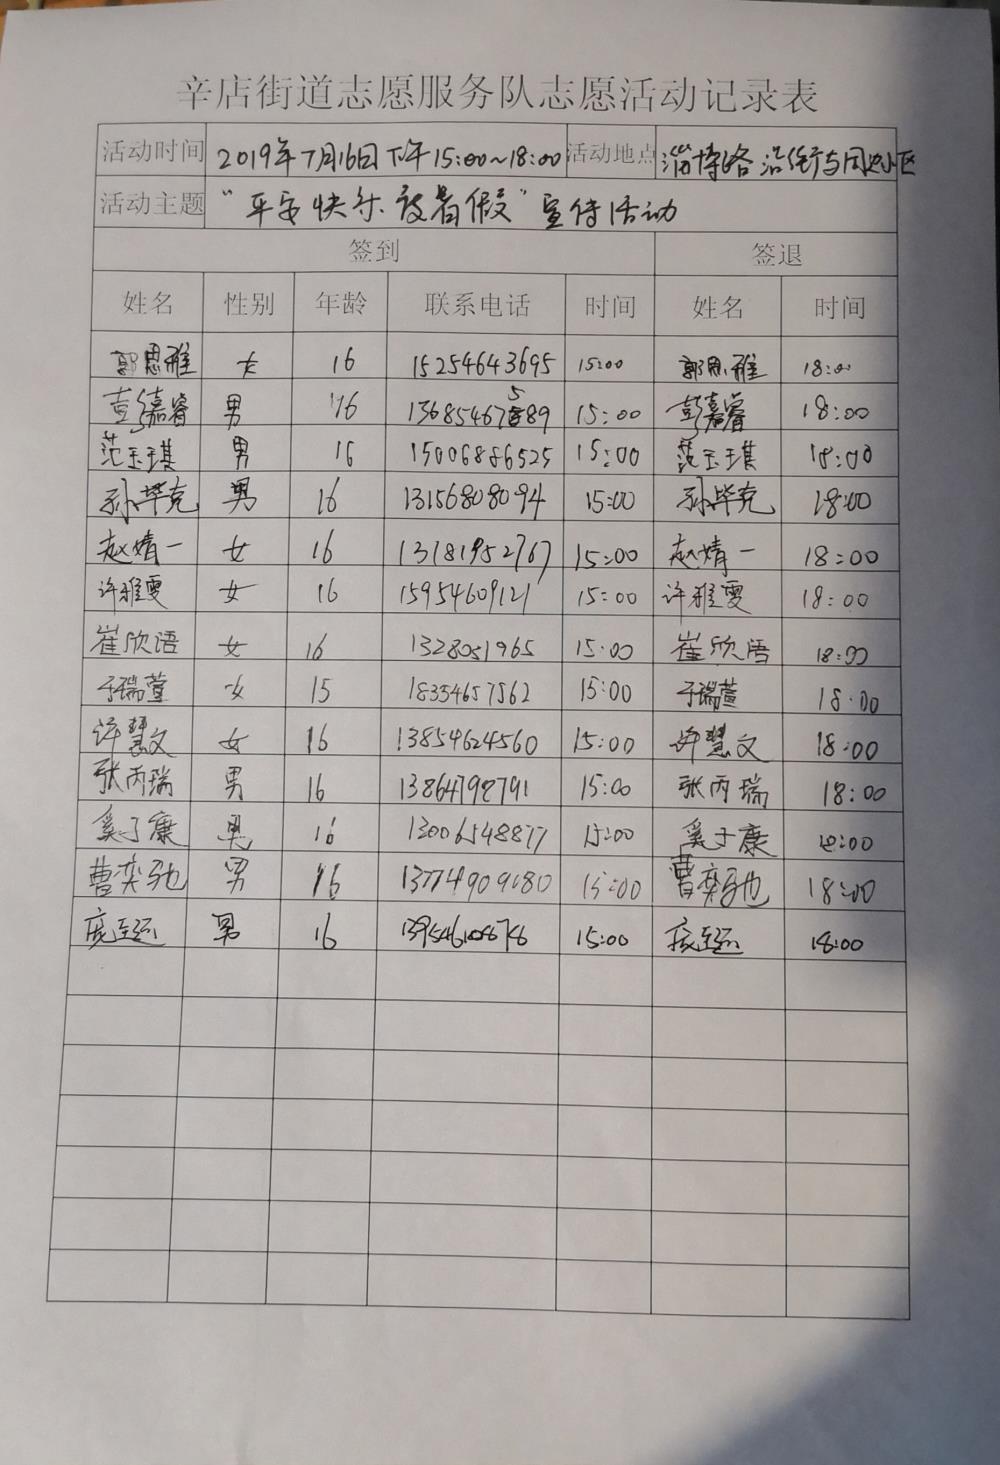 辛店街道志愿服务队志愿活动记录表
活动时间 2019年7月16日下午15:00~18:00 活动地点 淄博路沿街与周边小区
活动主题 “平安快乐度暑假”宣传活动
签到 签退
姓名 性别 年龄 联系电话 时间 姓名 时间
郭思雅 女 16 15254643695 15:00 郭思雅 18:00
彭嘉睿 男 16 13685467589 15:00 彭嘉睿 18:00
范玉琪 男 16 15006886525 15:00 范玉琪 18:00
孙毕克 男 16 13156808094 15:00 孙毕克 18:00
赵婧一 女 16 13181952767 15:00 赵婧一 18:00
许雅雯 女 16 15954609121 15:00 许雅雯 18:00
崔欣语 女 16 1328051965 15:00 崔欣语 18:00
于瑞萱 女 15 18354657562 15:00 于瑞萱 18:00
许慧文 女 16 13854624560 15:00 许慧文 18:00
张丙瑞 男 16 13864798791 15:00 张丙瑞 18:00
奚子康 男 16 13006548877 15:00 奚子康 18:00
曹奕驰 男 16 15:00 曹奕驰 18:00
男 16 15:00 18:00